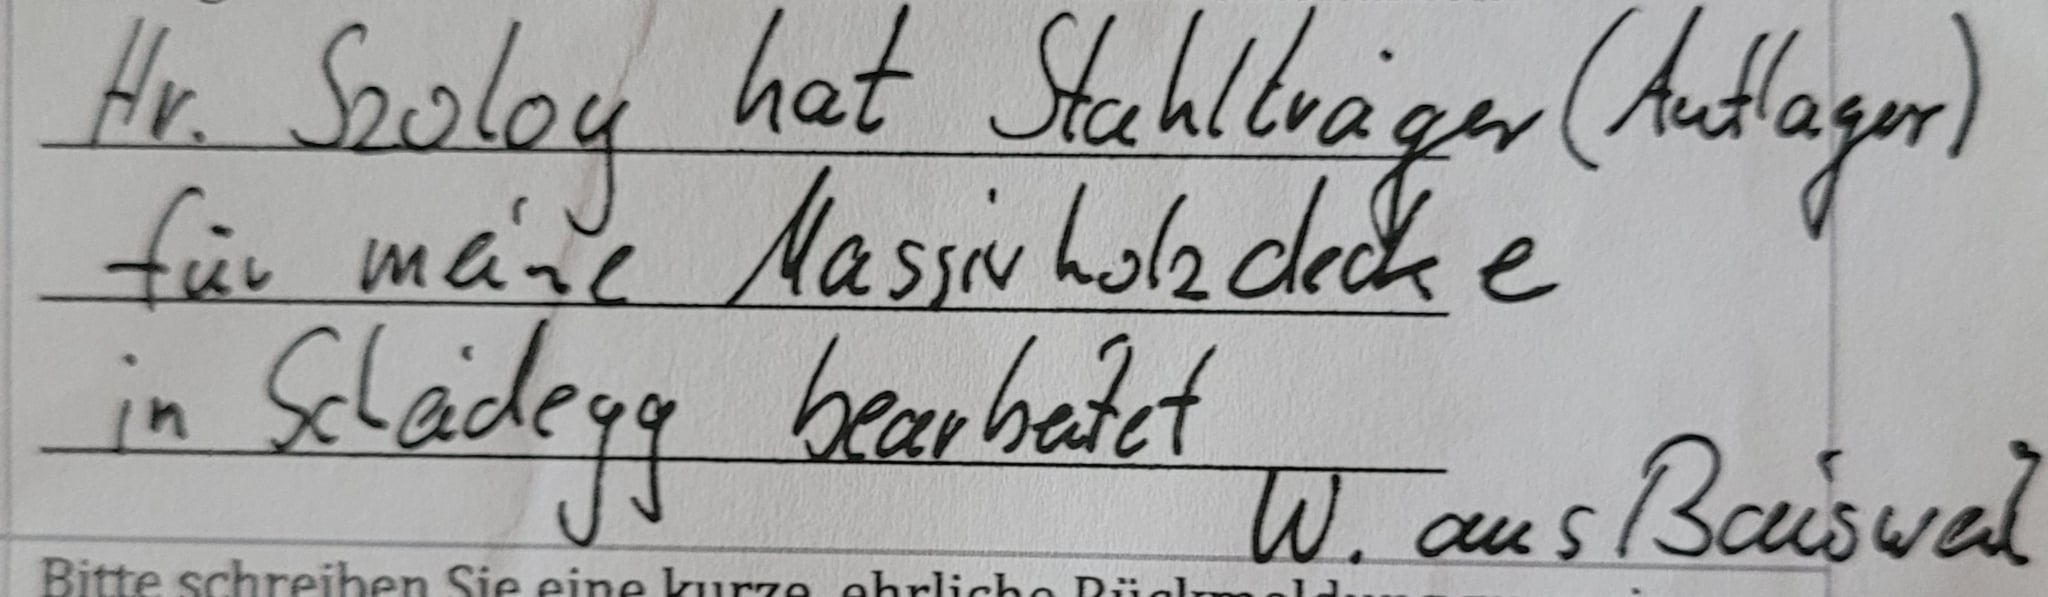 Hr. Szoloy hat Stahlträger (Auflager)
für meine Massivholzdecke
in Schädegg bearbeitet
W. aus Baisweil
Bitte schreiben Sie eine kurze, ehrliche Rückmeldung